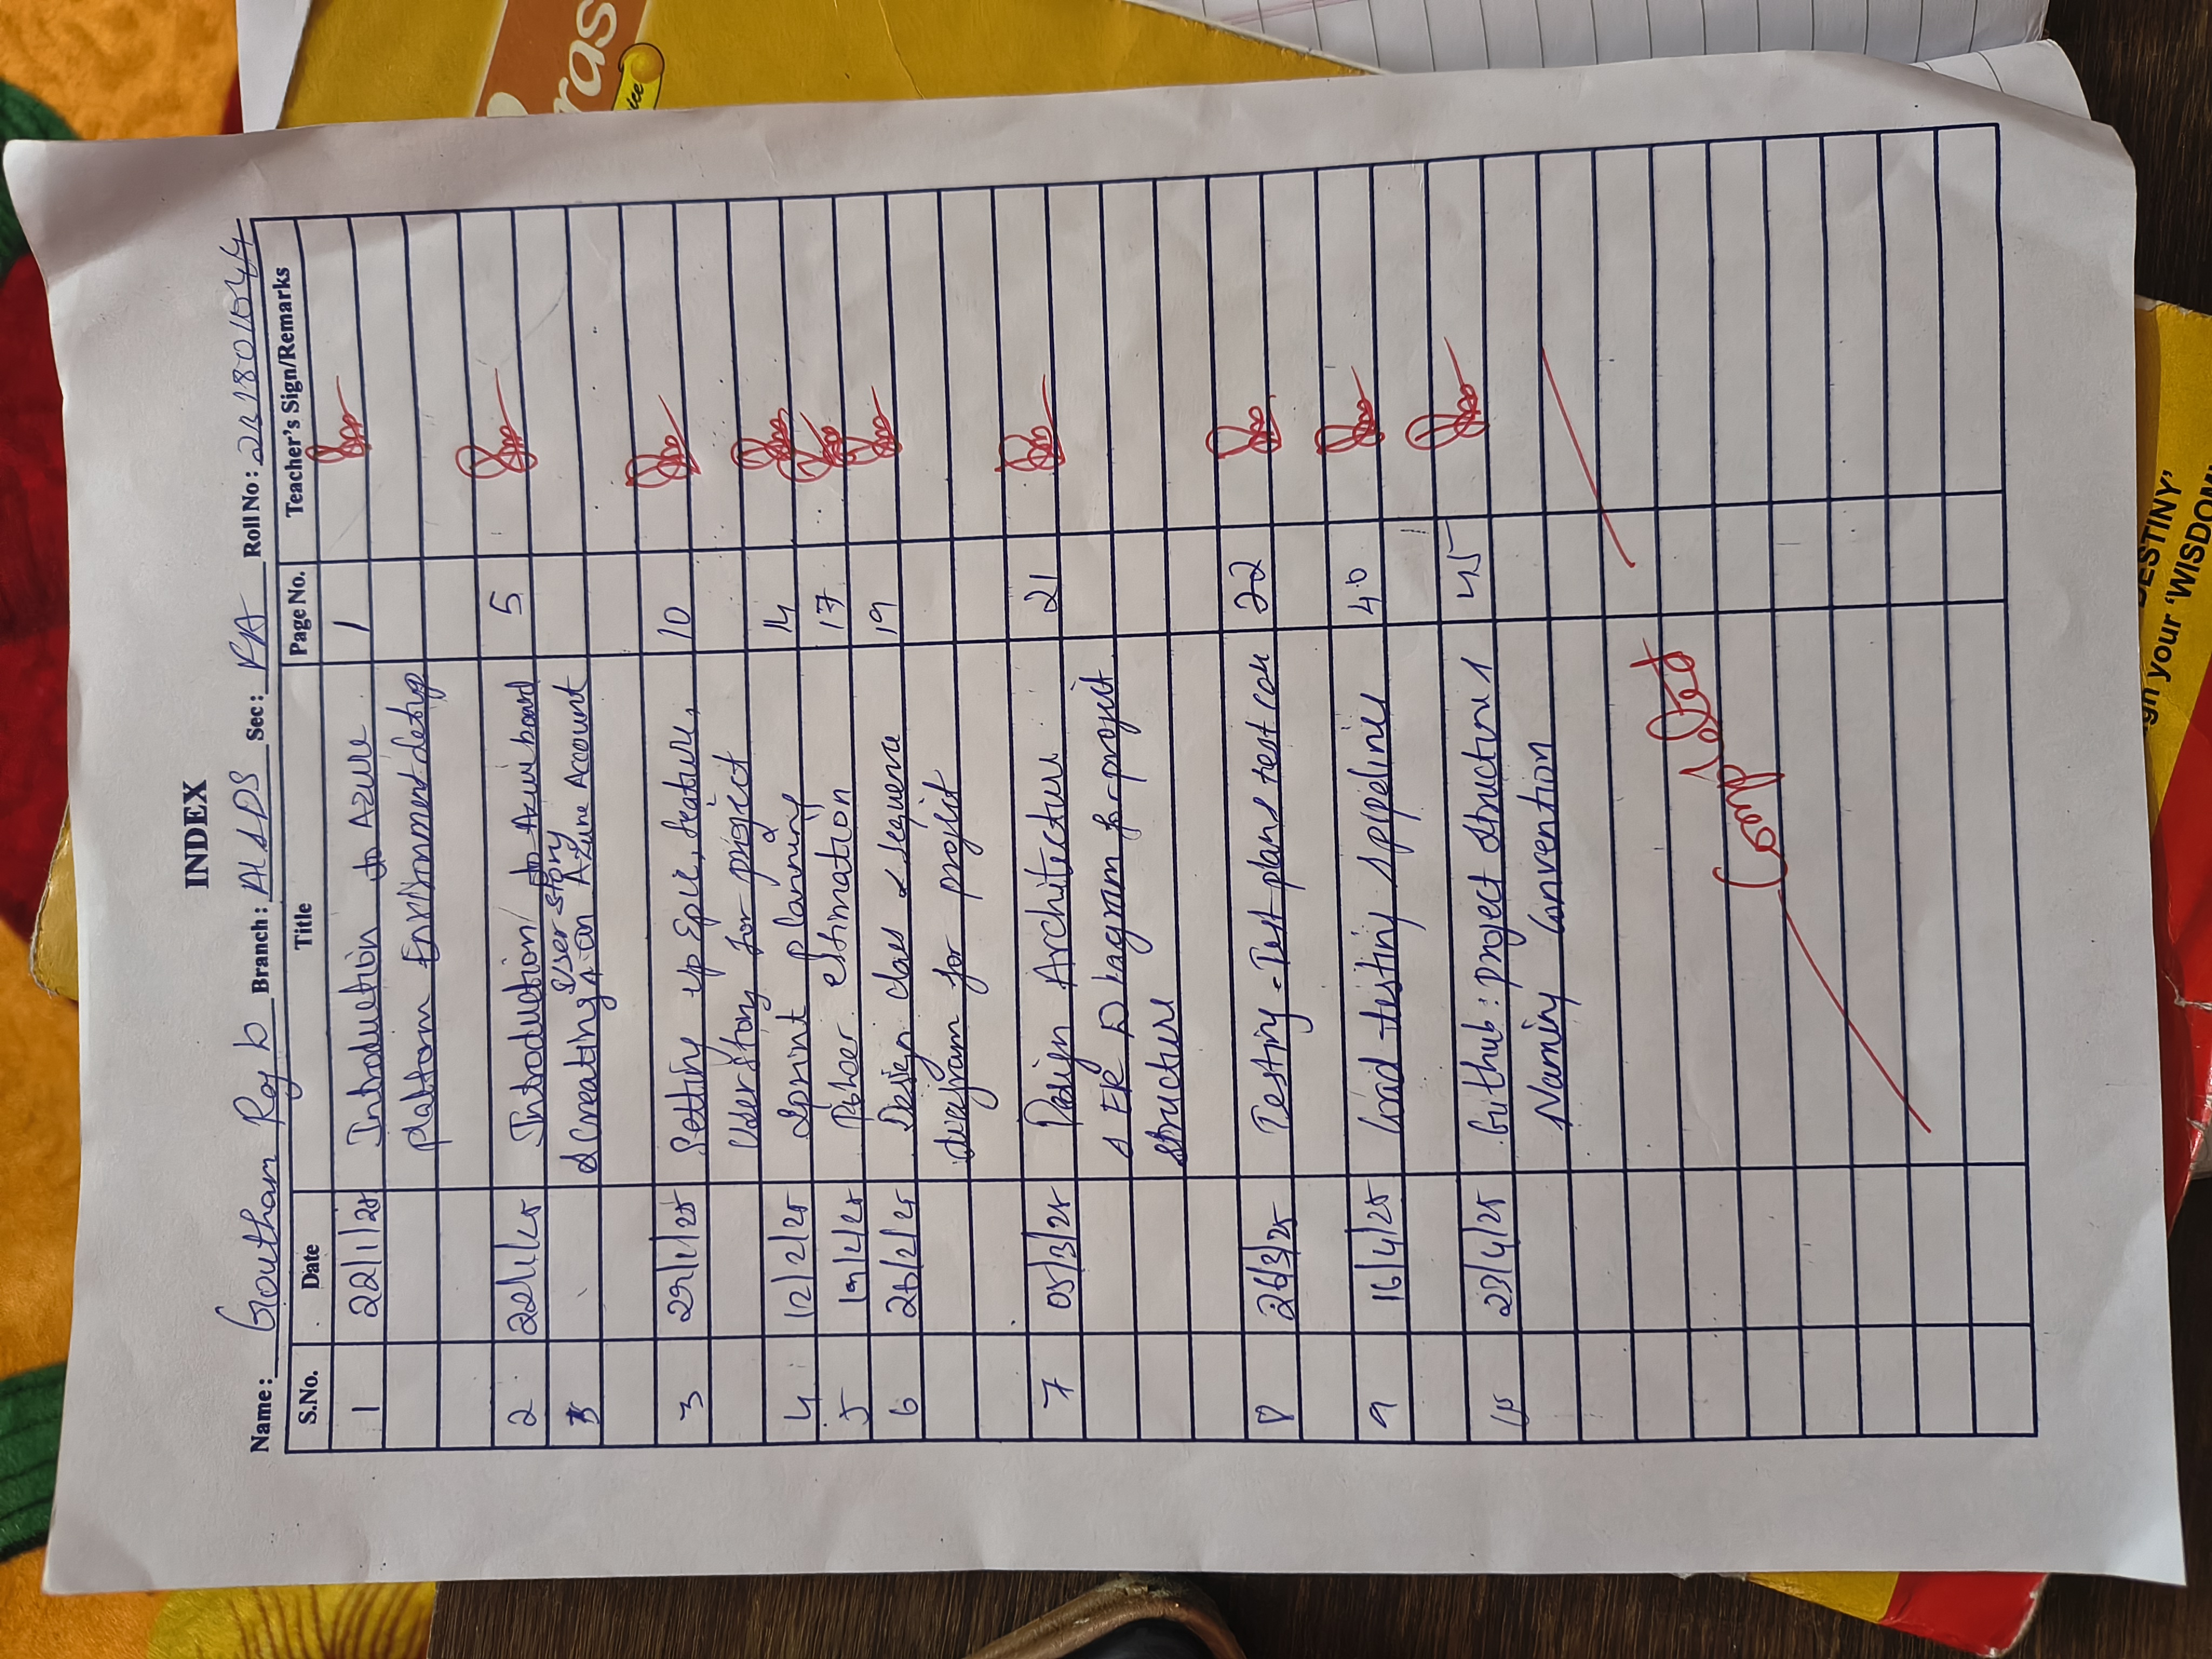 INDEX
Name: Goutham Raj b Branch: AI & DS Sec: FA Roll No: 231801044
S.No. Date Title Page No. Teacher's Sign/Remarks
1 22/1/25 Introduction to Azure 1
platform Environment Setup
2 22/1/25 Introduction to Azure board 5
User story
& Creating ^ on Azure Account
3 29/1/25 Setting up Epic, feature, 10
User story for project
4 12/2/25 Sprint planning 14
5 19/2/25 Poker estimation 17
6 26/2/25 Design class & sequence 19
diagram for project
7 05/3/25 Design Architecture 21
& ER Diagram for project
structure
8 26/3/25 Testing - Test plan & test case 22
9 16/4/25 Load testing & pipelines 40
10 23/4/25 Github: project structure & 45
Naming Convention
Completed
ras
ice
DESTINY'
gn your 'WISDOM'